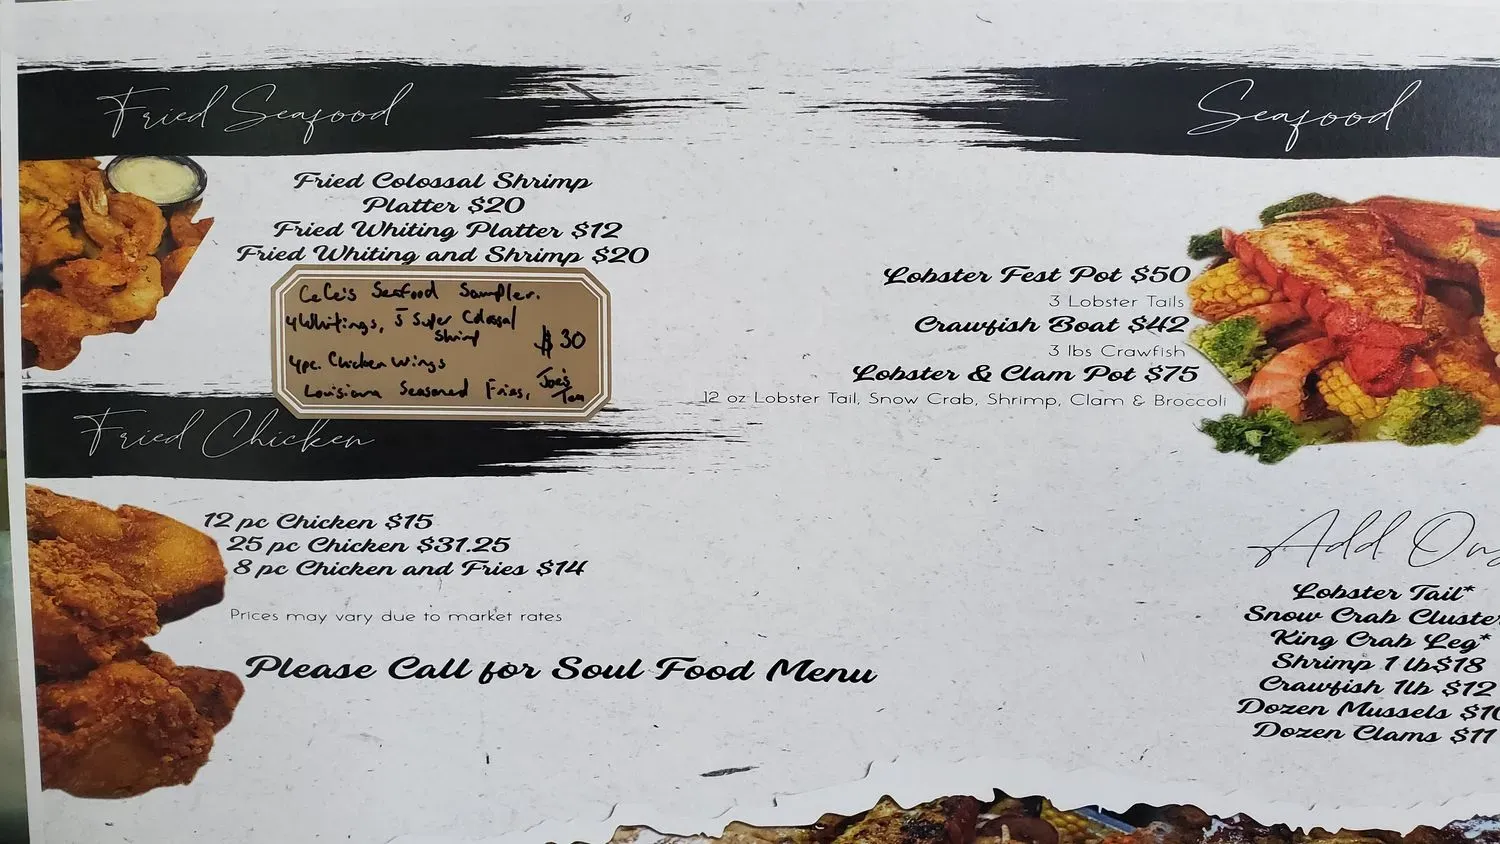 Fried Seafood
Fried Colossal Shrimp
Platter $20
Fried Whiting Platter $12
Fried Whiting and Shrimp $20
CeCe's Seafood Sampler.
4 Whitings, 5 Super Colossal
Shrimp
$30
4pc. Chicken Wings
Louisiana Seasoned Fries, Joe's
Tea
Fried Chicken
12 pc Chicken $15
25 pc Chicken $31.25
8 pc Chicken and Fries $14
Prices may vary due to market rates
Please Call for Soul Food Menu
Seafood
Lobster Fest Pot $50
3 Lobster Tails
Crawfish Boat $42
3 lbs Crawfish
Lobster & Clam Pot $75
12 oz Lobster Tail, Snow Crab, Shrimp, Clam & Broccoli
Add Ons
Lobster Tail*
Snow Crab Cluster
King Crab Leg*
Shrimp 1 lb$18
Crawfish 1lb $12
Dozen Mussels $10
Dozen Clams $11